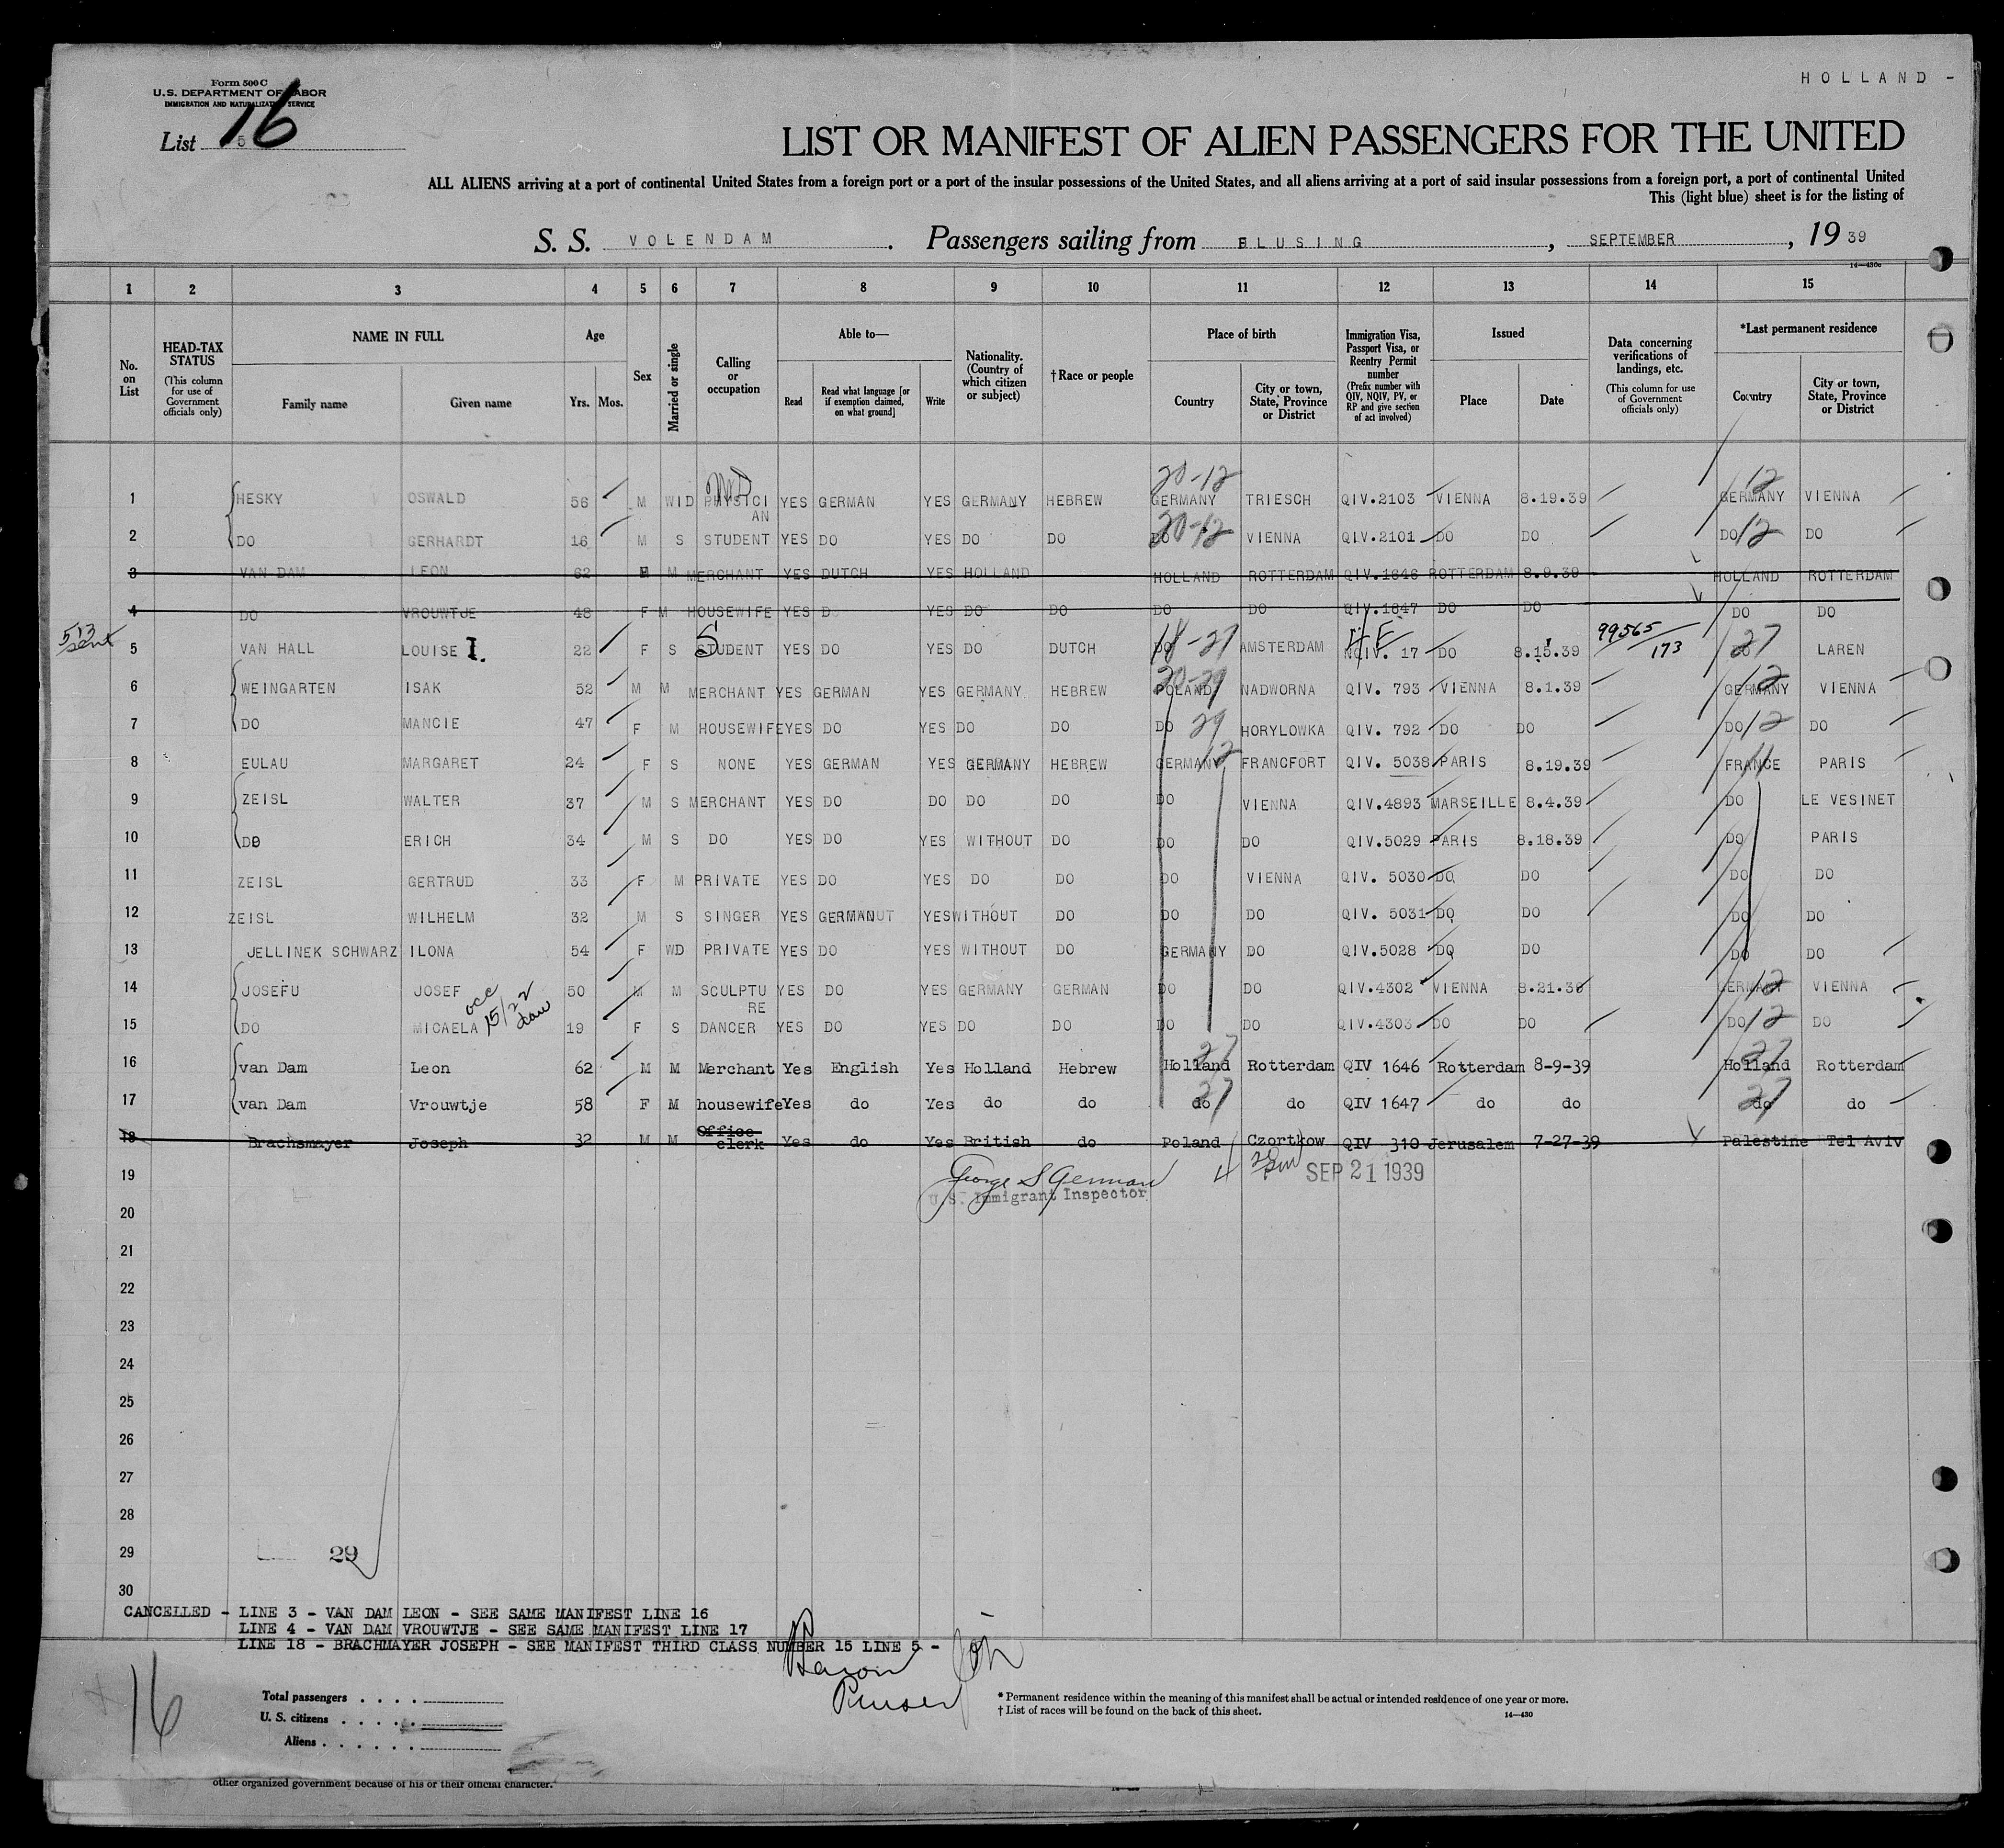 HOLLAND -
Form 500 C
U.S. DEPARTMENT OF LABOR
IMMIGRATION AND NATURALIZATION SERVICE
List 5 16
LIST OR MANIFEST OF ALIEN PASSENGERS FOR THE UNITED
ALL ALIENS arriving at a port of continental United States from a foreign port or a port of the insular possessions of the United States, and all aliens arriving at a port of said insular possessions from a foreign port, a port of continental United
This (light blue) sheet is for the listing of
S. S. VOLENDAM . Passengers sailing from FLUSING , SEPTEMBER , 19 39
14—430c
1 2 3 4 5 6 7 8 9 10 11 12 13 14 15
No. on List
HEAD-TAX STATUS (This column for use of Government officials only)
NAME IN FULL
Family name Given name
Age
Yrs. Mos.
Sex
Married or single
Calling or occupation
Able to—
Read Read what language [or if exemption claimed, on what ground] Write
Nationality. (Country of which citizen or subject)
†Race or people
Place of birth
Country City or town, State, Province or District
Immigration Visa, Passport Visa, or Reentry Permit number (Prefix number with QIV, NQIV, PV, or RP and give section of act involved)
Issued
Place Date
Data concerning verifications of landings, etc. (This column for use of Government officials only)
*Last permanent residence
Country City or town, State, Province or District
20-12 12
1 HESKY OSWALD 56 M WID PHYSICIAN YES GERMAN YES GERMANY HEBREW GERMANY TRIESCH QIV.2103 VIENNA 8.19.39 GERMANY VIENNA
2 DO GERHARDT 16 M S STUDENT YES DO YES DO DO DO 20-12 VIENNA QIV.2101 DO DO DO 12 DO
3 VAN DAM LEON 62 M M MERCHANT YES DUTCH YES HOLLAND HOLLAND ROTTERDAM QIV.1646 ROTTERDAM 8.9.39 HOLLAND ROTTERDAM
4 DO VROUWTJE 48 F M HOUSEWIFE YES DO YES DO DO DO DO QIV.1647 DO DO DO DO
513 sent 5 VAN HALL LOUISE I. 22 F S STUDENT YES DO YES DO DUTCH DO 18-27 AMSTERDAM NQIV. 17 DO 8.15.39 99565/173 DO 27 LAREN
6 WEINGARTEN ISAK 52 M M MERCHANT YES GERMAN YES GERMANY HEBREW POLAND 20-29 NADWORNA QIV. 793 VIENNA 8.1.39 GERMANY 12 VIENNA
7 DO MANCIE 47 F M HOUSEWIFE YES DO YES DO DO DO 29 HORYLOWKA QIV. 792 DO DO DO 12 DO
8 EULAU MARGARET 24 F S NONE YES GERMAN YES GERMANY HEBREW GERMANY 12 FRANCFORT QIV. 5038 PARIS 8.19.39 FRANCE 11 PARIS
9 ZEISL WALTER 37 M S MERCHANT YES DO DO DO DO DO VIENNA QIV.4893 MARSEILLE 8.4.39 DO LE VESINET
10 DO ERICH 34 M S DO YES DO YES WITHOUT DO DO DO QIV.5029 PARIS 8.18.39 DO PARIS
11 ZEISL GERTRUD 33 F M PRIVATE YES DO YES DO DO DO VIENNA QIV. 5030 DO DO DO DO
12 ZEISL WILHELM 32 M S SINGER YES GERMAN YES WITHOUT DO DO DO QIV. 5031 DO DO DO DO
13 JELLINEK SCHWARZ ILONA 54 F WD PRIVATE YES DO YES WITHOUT DO GERMANY DO QIV.5028 DO DO DO DO
14 JOSEFU JOSEF 50 M M SCULPTURE YES DO YES GERMANY GERMAN DO DO QIV.4302 VIENNA 8.21.39 GERMANY 12 VIENNA
15 DO MICAELA 19 F S DANCER YES DO YES DO DO DO DO QIV.4303 DO DO DO 12 DO
16 van Dam Leon 62 M M Merchant Yes English Yes Holland Hebrew Holland 27 Rotterdam QIV 1646 Rotterdam 8-9-39 Holland 27 Rotterdam
17 van Dam Vrouwtje 58 F M housewife Yes do Yes do do do 27 do QIV 1647 do do do 27 do
18 Brachsmayer Joseph 32 M M Office clerk Yes do Yes British do Poland Czortkow QIV 310 Jerusalem 7-27-39 Palestine Tel Aviv
19 George S German SEP 21 1939
U.S. Immigrant Inspector
20
21
22
23
24
25
26
27
28
29 29
30
CANCELLED - LINE 3 - VAN DAM LEON - SEE SAME MANIFEST LINE 16
LINE 4 - VAN DAM VROUWTJE - SEE SAME MANIFEST LINE 17
LINE 18 - BRACHMAYER JOSEPH - SEE MANIFEST THIRD CLASS NUMBER 15 LINE 5 -
16
Purser
Total passengers . . . .
U. S. citizens . . . . .
Aliens . . . . . .
* Permanent residence within the meaning of this manifest shall be actual or intended residence of one year or more.
† List of races will be found on the back of this sheet.
14—430
other organized government because of his or their official character.